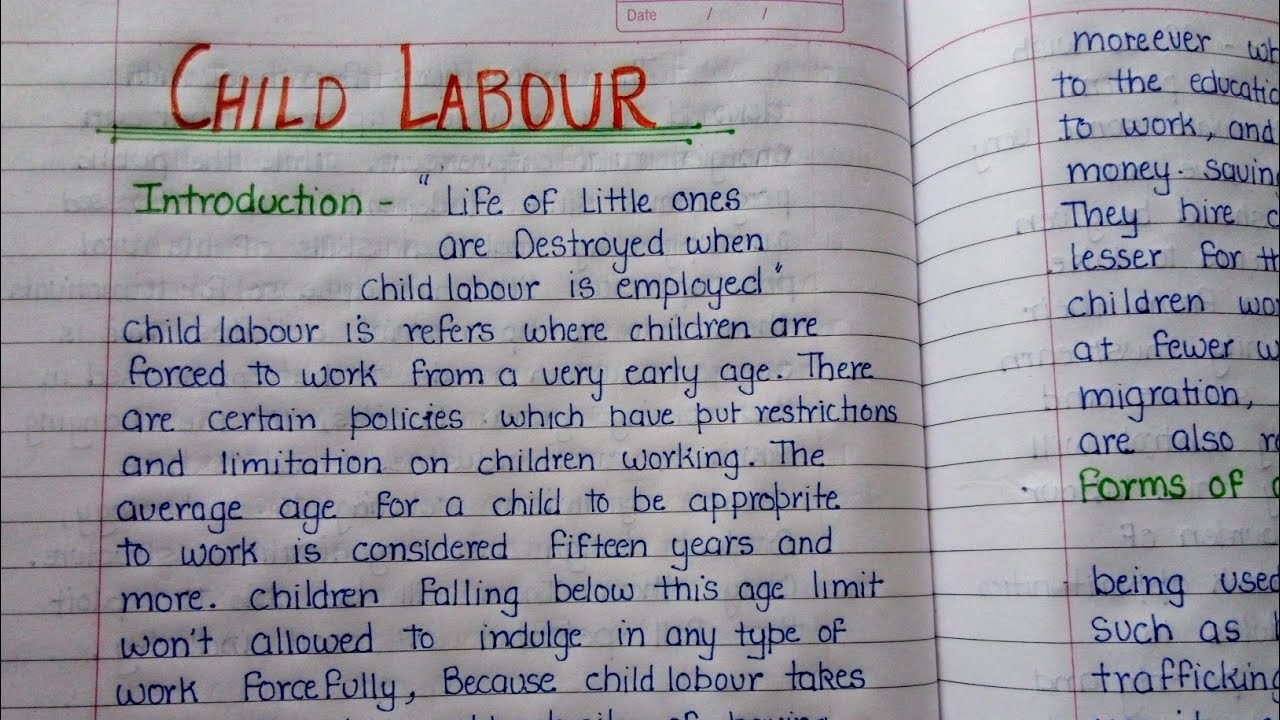 Date / /
CHILD LABOUR
Introduction - "Life of Little ones
are Destroyed when
child labour is employed"
child labour is refers where children are
forced to work from a very early age. There
are certain policies which have put restrictions
and limitation on children working. The
average age for a child to be approprite
to work is considered fifteen years and
more. children falling below this age limit
won't allowed to indulge in any type of
work forcefully, Because child lobour takes
moreever
to the
to work, and
money.
They hire
lesser for
children
at fewer
migration,
are also
forms of
being used
such as
trafficking